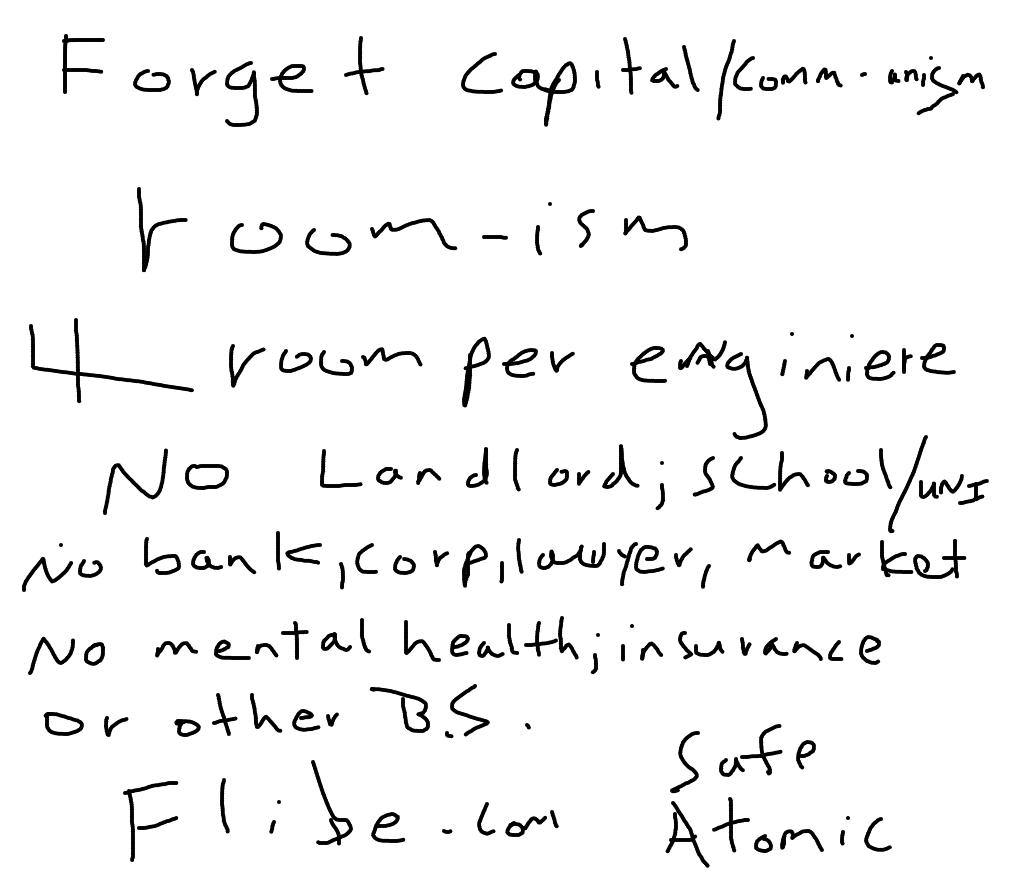 Forget capital/comm.unism
room-ism
4 room per enginiere
NO Landlord; school/UNI
NO bank, corp, lawyer, market
NO mental health; insurance
or other B.S.
Flibe.com
Safe
Atomic